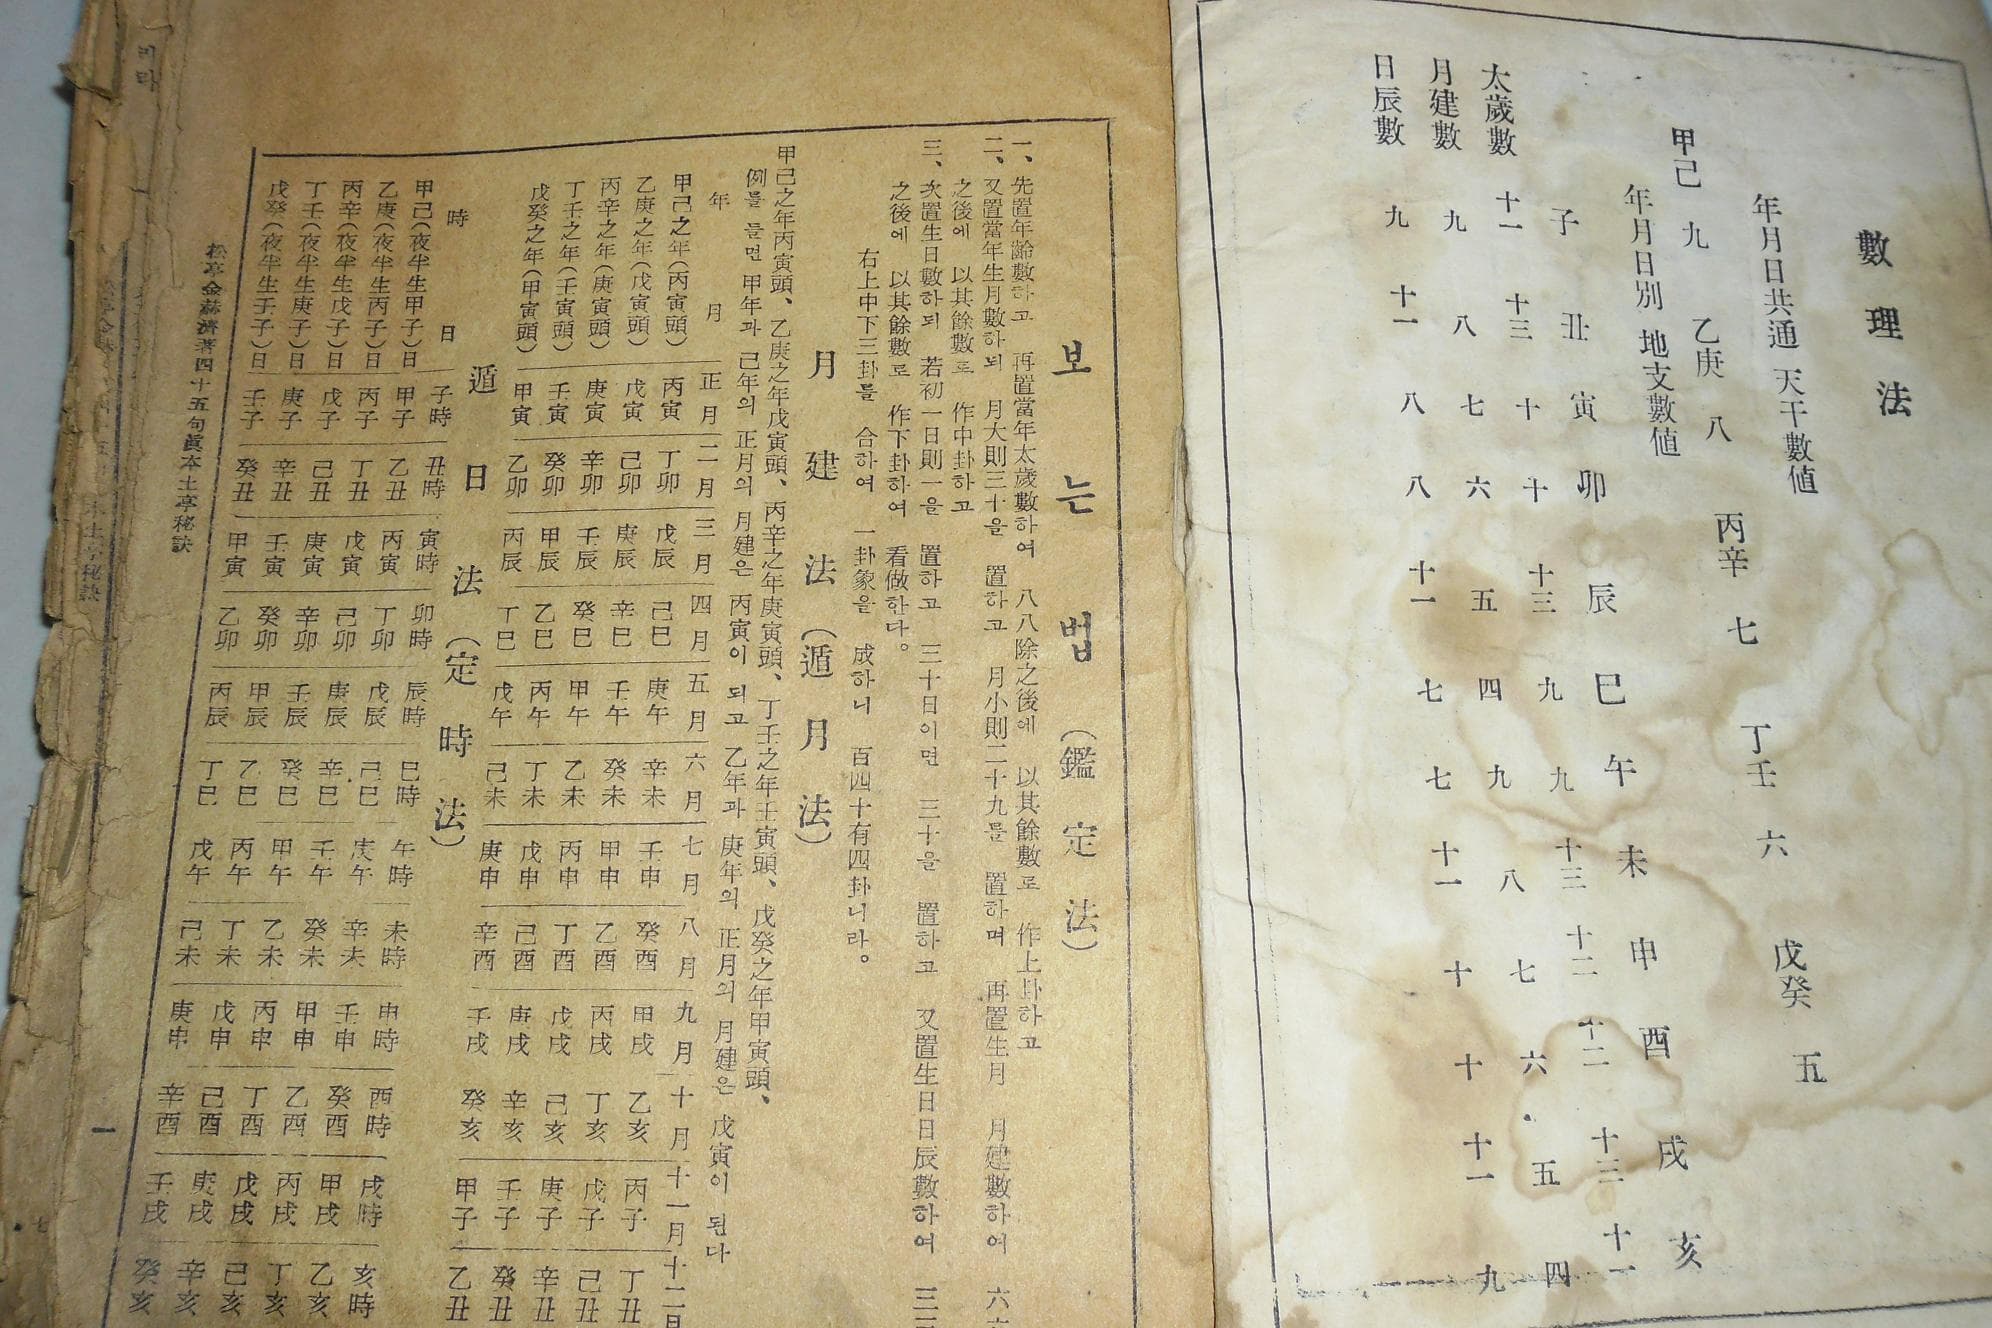 數理法
年月日共通 天干數値
甲己 九 乙庚 八 丙辛 七 丁壬 六 戊癸 五
年月日別 地支數値
子 丑 寅 卯 辰 巳 午 未 申 酉 戌 亥
太歲數 十一 十三 十 十 十三 九 九 十三 十二 十二 十三 十一
月建數 九 八 七 六 五 四 九 八 七 六 五 四
日辰數 九 十一 八 八 十一 七 七 十一 十 十 十一 九
보는법 (鑑定法)
一、先置年齡數하고 再置當年太歲數하여 八八除之後에 以其餘數로 作上卦하고
二、又置當年生月數하되 月大則三十을 置하고 月小則二十九를 置하며 再置生月 月建數하여 六
之後에 以其餘數로 作中卦하고
三、次置生日數하되 若初一日則一을 置하고 三十日이면 三十을 置하고 又置生日日辰數하여 三
之後에 以其餘數로 作下卦하여 看做한다。
右上中下三卦를 合하여 一卦象을 成하니 百四十有四卦니라。
月建法 (遁月法)
甲己之年丙寅頭、乙庚之年戊寅頭、丙辛之年庚寅頭、丁壬之年壬寅頭、戊癸之年甲寅頭、
例를 들면 甲年과 己年의 正月의 月建은 丙寅이 되고 乙年과 庚年의 正月의 月建은 戊寅이 된다
年 月 正月 二月 三月 四月 五月 六月 七月 八月 九月 十月 十一月 十二月
甲己之年(丙寅頭) 丙寅 丁卯 戊辰 己巳 庚午 辛未 壬申 癸酉 甲戌 乙亥 丙子 丁丑
乙庚之年(戊寅頭) 戊寅 己卯 庚辰 辛巳 壬午 癸未 甲申 乙酉 丙戌 丁亥 戊子 己丑
丙辛之年(庚寅頭) 庚寅 辛卯 壬辰 癸巳 甲午 乙未 丙申 丁酉 戊戌 己亥 庚子 辛丑
丁壬之年(壬寅頭) 壬寅 癸卯 甲辰 乙巳 丙午 丁未 戊申 己酉 庚戌 辛亥 壬子 癸丑
戊癸之年(甲寅頭) 甲寅 乙卯 丙辰 丁巳 戊午 己未 庚申 辛酉 壬戌 癸亥 甲子 乙丑
遁日法 (定時法)
時 日 子時 丑時 寅時 卯時 辰時 巳時 午時 未時 申時 酉時 戌時 亥時
甲己(夜半生甲子)日 甲子 乙丑 丙寅 丁卯 戊辰 己巳 庚午 辛未 壬申 癸酉 甲戌 乙亥
乙庚(夜半生丙子)日 丙子 丁丑 戊寅 己卯 庚辰 辛巳 壬午 癸未 甲申 乙酉 丙戌 丁亥
丙辛(夜半生戊子)日 戊子 己丑 庚寅 辛卯 壬辰 癸巳 甲午 乙未 丙申 丁酉 戊戌 己亥
丁壬(夜半生庚子)日 庚子 辛丑 壬寅 癸卯 甲辰 乙巳 丙午 丁未 戊申 己酉 庚戌 辛亥
戊癸(夜半生壬子)日 壬子 癸丑 甲寅 乙卯 丙辰 丁巳 戊午 己未 庚申 辛酉 壬戌 癸亥
松亭金赫濟著四十五句眞本土亭秘訣
一